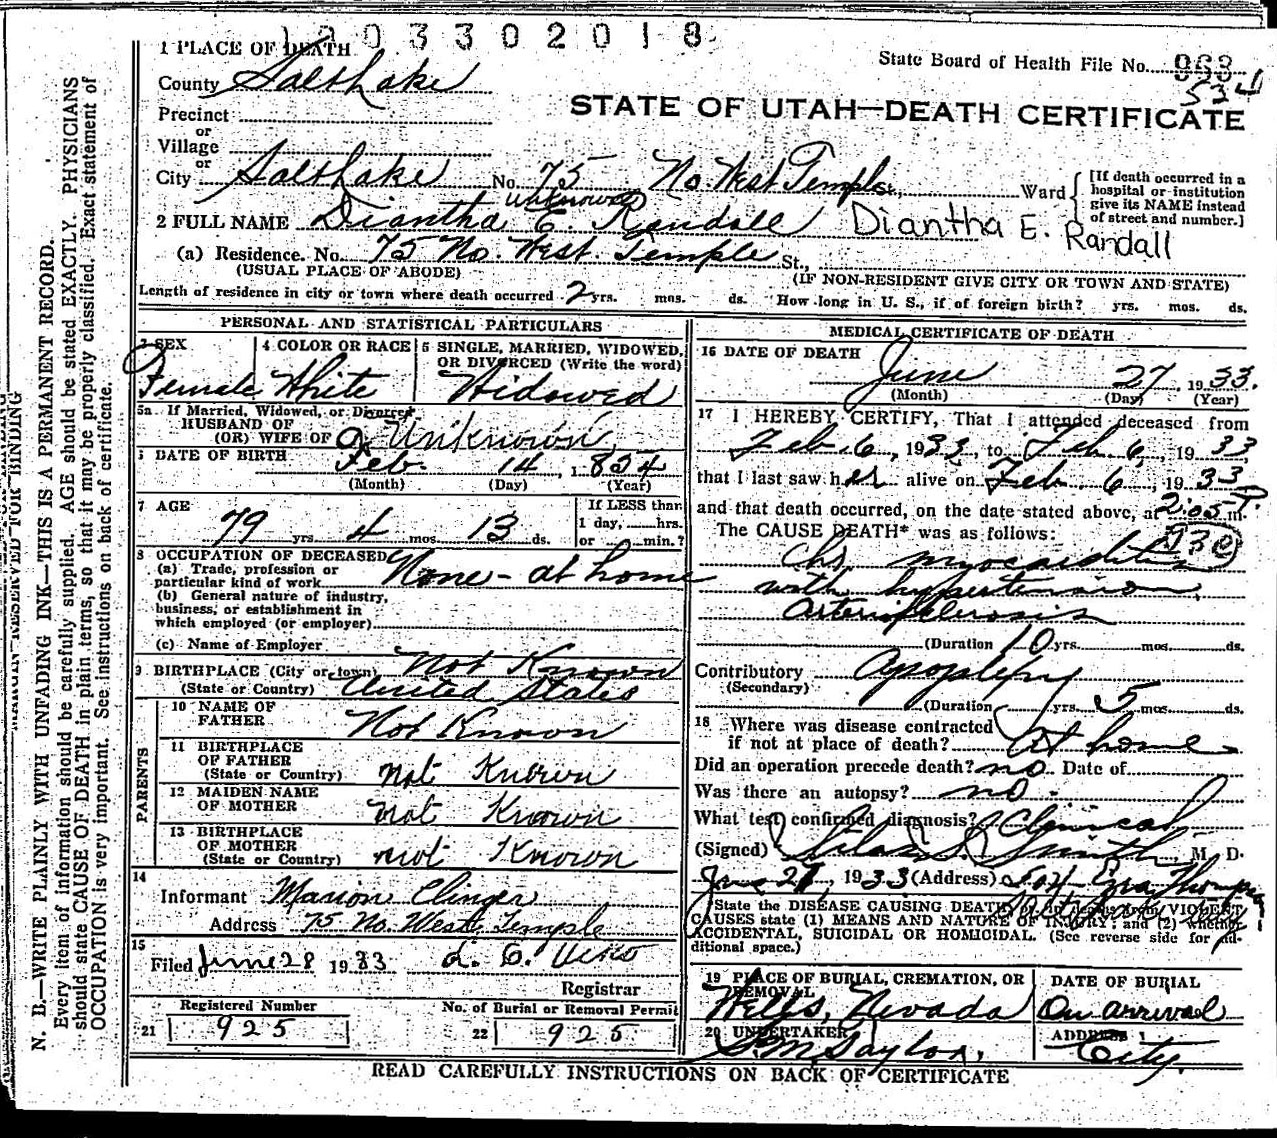 1 PLACE OF DEATH
3302018
State Board of Health File No. 968
534
County Salt Lake
STATE OF UTAH—DEATH CERTIFICATE
Precinct
or
Village
or
City Salt Lake No. 75 No. West Temple St., Ward
[If death occurred in a hospital or institution give its NAME instead of street and number.]
unknown
2 FULL NAME Diantha E. Randall Diantha E. Randall
(a) Residence. No. 75 No. West. Temple St.,
(USUAL PLACE OF ABODE) (IF NON-RESIDENT GIVE CITY OR TOWN AND STATE)
Length of residence in city or town where death occurred 2 yrs. mos. ds. How long in U. S., if of foreign birth? yrs. mos. ds.
PERSONAL AND STATISTICAL PARTICULARS
3 SEX
Female
4 COLOR OR RACE
White
5 SINGLE, MARRIED, WIDOWED, OR DIVORCED (Write the word)
Widowed
5a If Married, Widowed, or Divorced
HUSBAND OF
(OR) WIFE OF Unknown
6 DATE OF BIRTH Feb. 14 1854
(Month) (Day) (Year)
7 AGE
79 yrs 4 mos 13 ds.
If LESS than
1 day, hrs.
or min.?
8 OCCUPATION OF DECEASED
(a) Trade, profession or
particular kind of work None - at home
(b) General nature of industry,
business, or establishment in
which employed (or employer)
(c) Name of Employer
9 BIRTHPLACE (City or town) Not Known
(State or Country) United States
PARENTS
10 NAME OF
FATHER Not Known
11 BIRTHPLACE
OF FATHER
(State or Country) not Known
12 MAIDEN NAME
OF MOTHER not Known
13 BIRTHPLACE
OF MOTHER
(State or Country) not Known
14
Informant Marion Clinger
Address 75 No. West Temple
15
Filed June 28 1933
Registrar
Registered Number
21 925
No. of Burial or Removal Permit
22 925
MEDICAL CERTIFICATE OF DEATH
16 DATE OF DEATH
June 27, 1933.
(Month) (Day) (Year)
17 I HEREBY CERTIFY, That I attended deceased from
Feb. 6, 1933, to Feb 6, 1933
that I last saw her alive on Feb. 6, 1933
and that death occurred, on the date stated above, at 2:05 P. m.
The CAUSE DEATH* was as follows:
Chr myocarditis
with hypertension,
arteriosclerosis
(Duration 10 yrs. mos. ds.
Contributory Apoplexy
(Secondary)
(Duration yrs. 5 mos. ds.
18 Where was disease contracted
if not at place of death? At home
Did an operation precede death? no Date of
Was there an autopsy? no.
What test confirmed diagnosis? Clinical
(Signed) Silas S. Smith, M. D.
June 27, 1933 (Address) Ezra Thompson
State the DISEASE CAUSING DEATH, or, in deaths from VIOLENT
CAUSES state (1) MEANS AND NATURE OF INJURY; and (2) whether
ACCIDENTAL, SUICIDAL OR HOMICIDAL. (See reverse side for additional space.)
19 PLACE OF BURIAL, CREMATION, OR
REMOVAL
Wells, Nevada
DATE OF BURIAL
On arrival
20 UNDERTAKER
S. M. Taylor,
ADDRESS
City.
READ CAREFULLY INSTRUCTIONS ON BACK OF CERTIFICATE
MARGIN RESERVED FOR BINDING
N. B.—WRITE PLAINLY WITH UNFADING INK—THIS IS A PERMANENT RECORD.
Every item of information should be carefully supplied. AGE should be stated EXACTLY. PHYSICIANS
should state CAUSE OF DEATH in plain terms, so that it may be properly classified. Exact statement of
OCCUPATION is very important. See instructions on back of certificate.